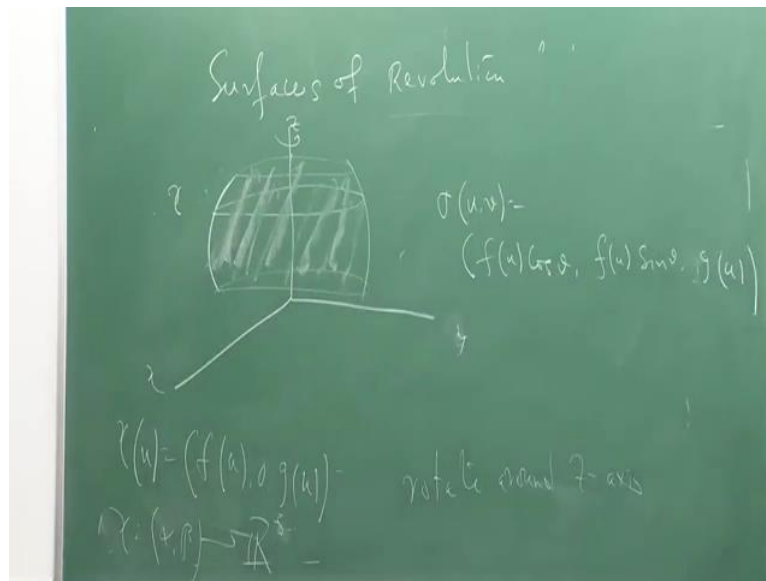 Surfaces of Revolution
z
γ
σ(u,v)=
(f(u) Cos v, f(u) Sin v, g(u))
y
x
γ(u) = (f(u), 0, g(u))
rotate around z-axis
γ: (α, β) → ℝ³